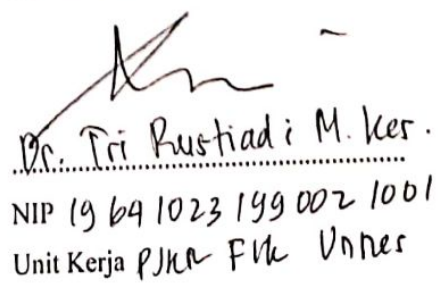 Dr. Tri Rustiadi M. Kes.
NIP 19641023 199002 1001
Unit Kerja PJKR FIK Unnes